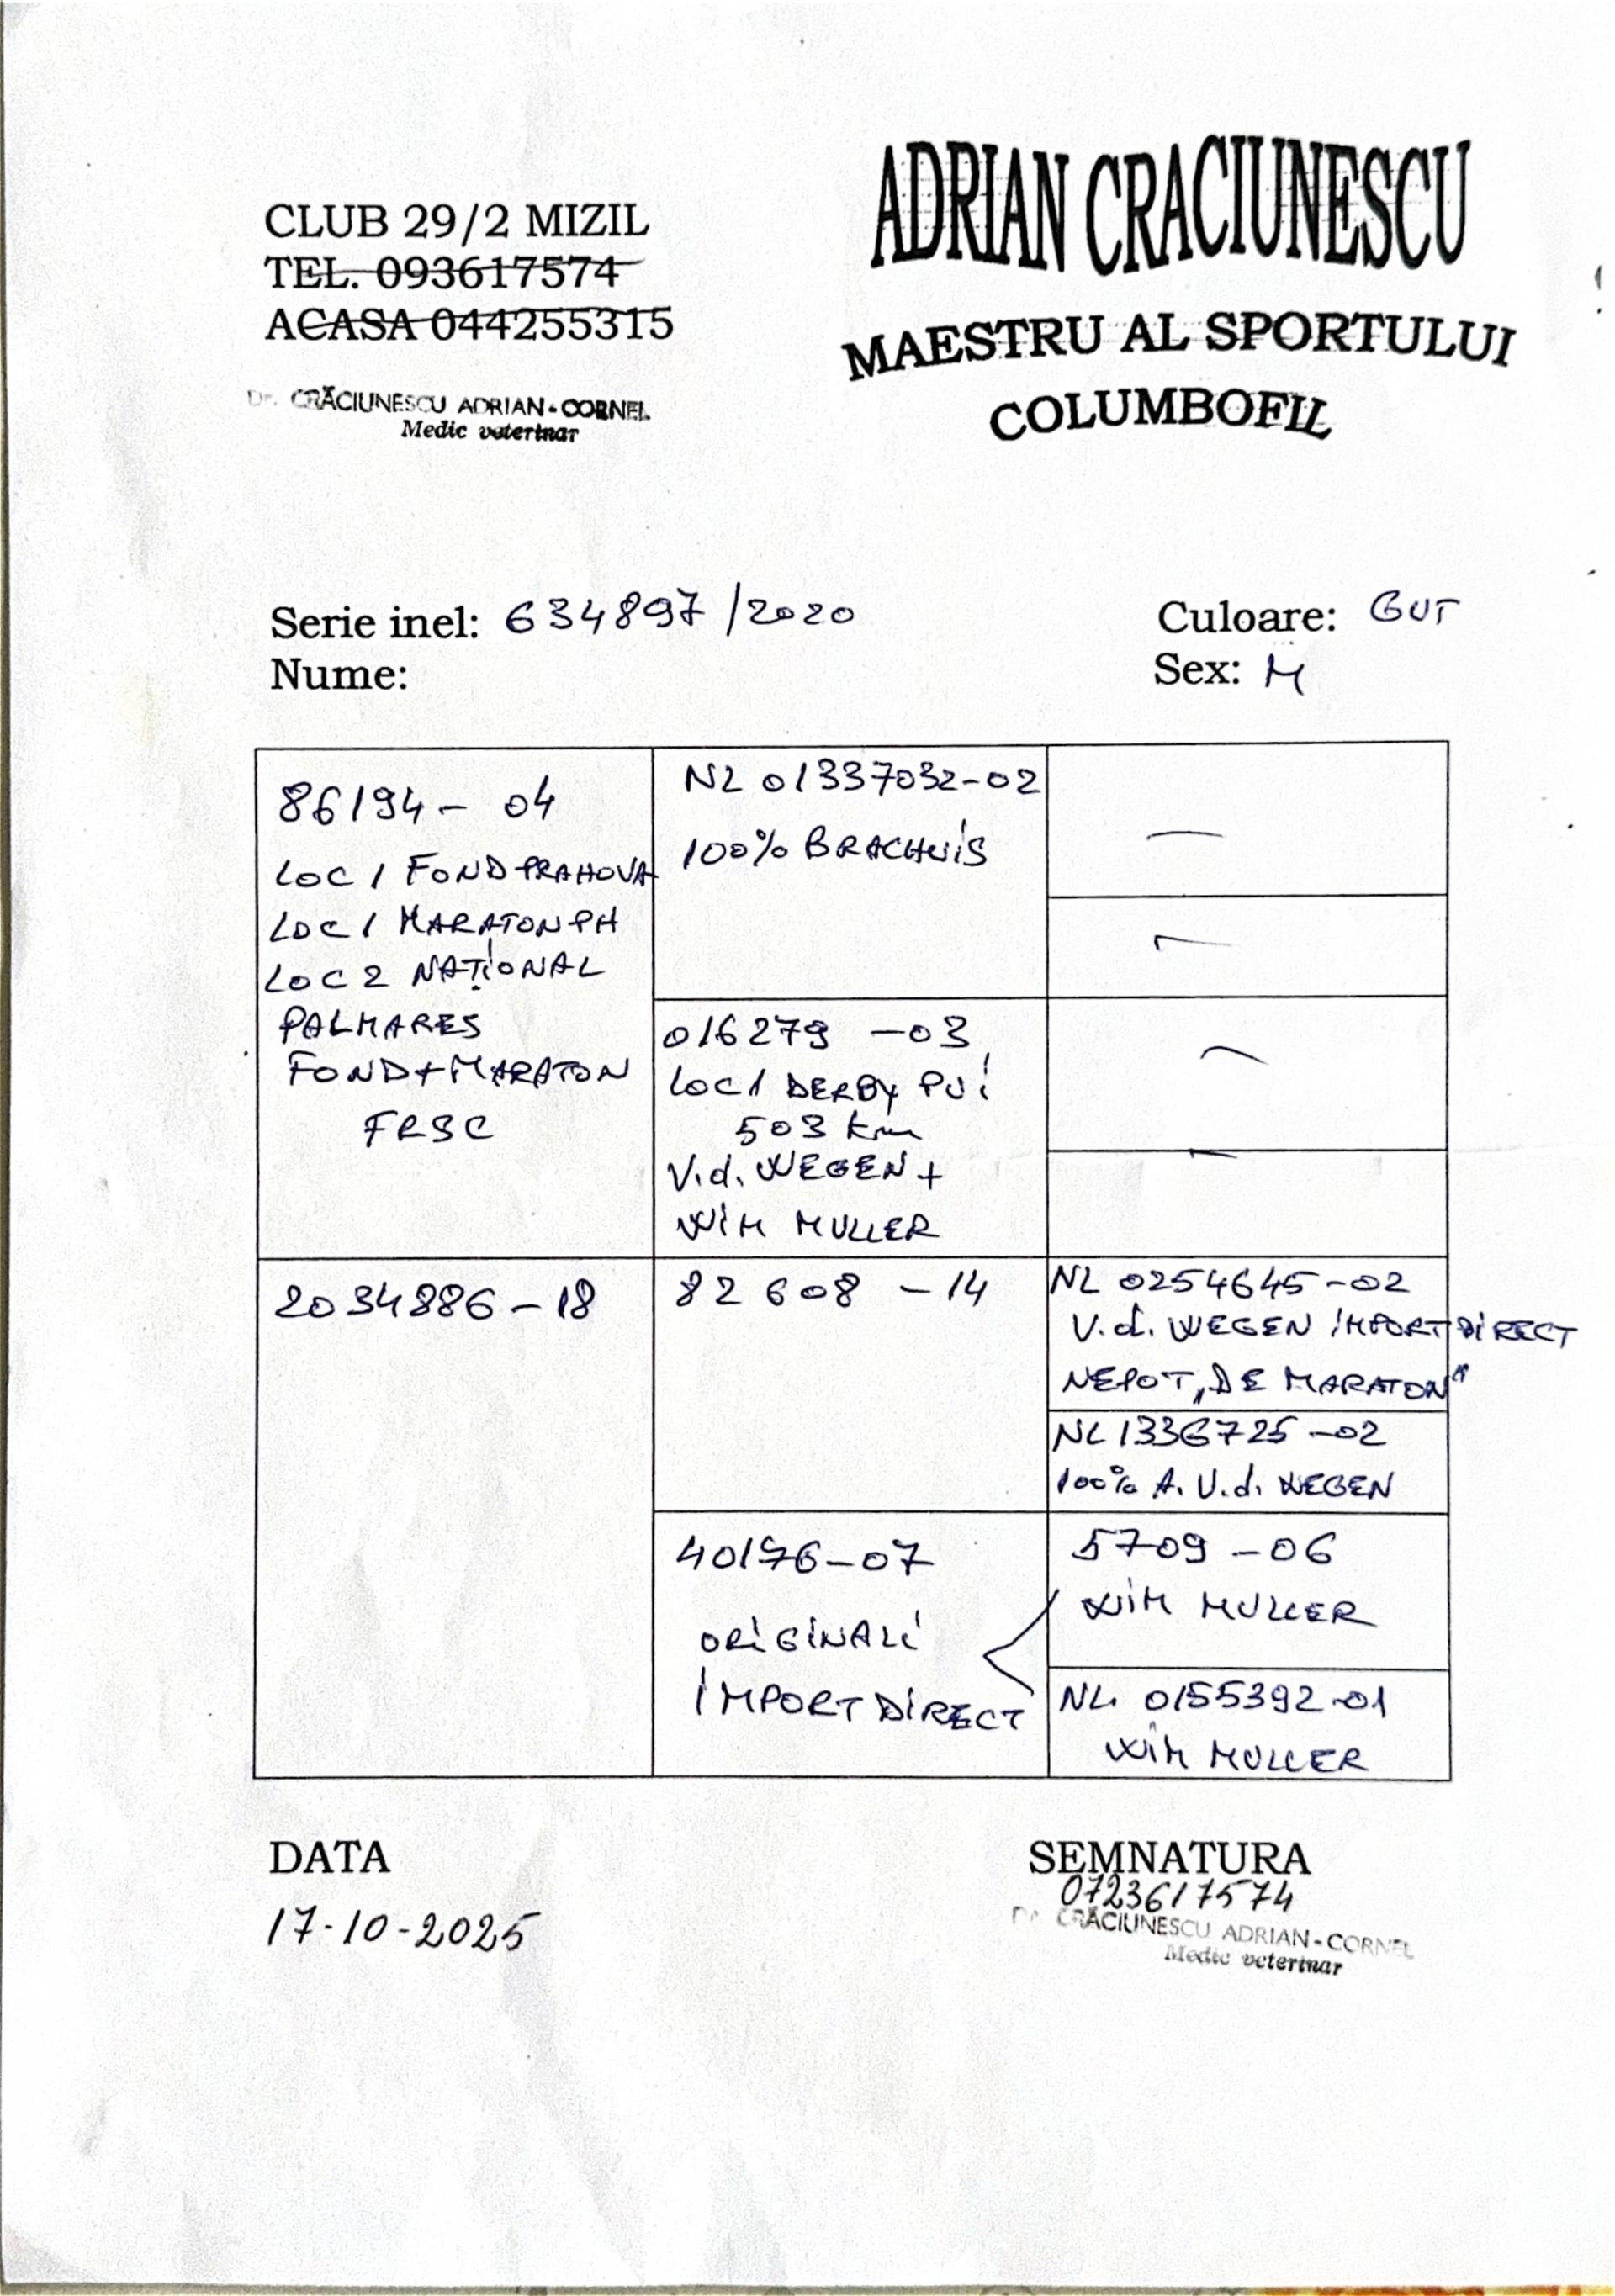 CLUB 29/2 MIZIL
TEL. 093617574
ACASA 044255315
Dr. CRĂCIUNESCU ADRIAN-CORNEL
Medic veterinar
ADRIAN CRACIUNESCU
MAESTRU AL SPORTULUI
COLUMBOFIL
Serie inel: 634897/2020
Nume:
Culoare: GUT
Sex: M
86194 - 04
LOC 1 FOND PRAHOVA
LOC 1 MARATON PH
LOC 2 NAȚIONAL
PALMARES
FOND+MARATON
FRSC
NL 01337032-02
100% BRACHUIS
—
—
016279 -03
LOC 1 DERBY PUI
503 km
V.d. WEGEN +
WIM MULLER
—
—
2034886-18
82608 -14
NL 0254645-02
V.d. WEGEN IMPORT DIRECT
NEPOT „DE MARATON"
NL 1336725-02
100% A. V.d. WEGEN
40176-07
ORIGINALI
IMPORT DIRECT
5709 -06
WIM MULLER
NL. 0155392-01
WIM MULLER
DATA
17-10-2025
SEMNATURA
0723617574
Dr. CRĂCIUNESCU ADRIAN-CORNEL
Medic veterinar